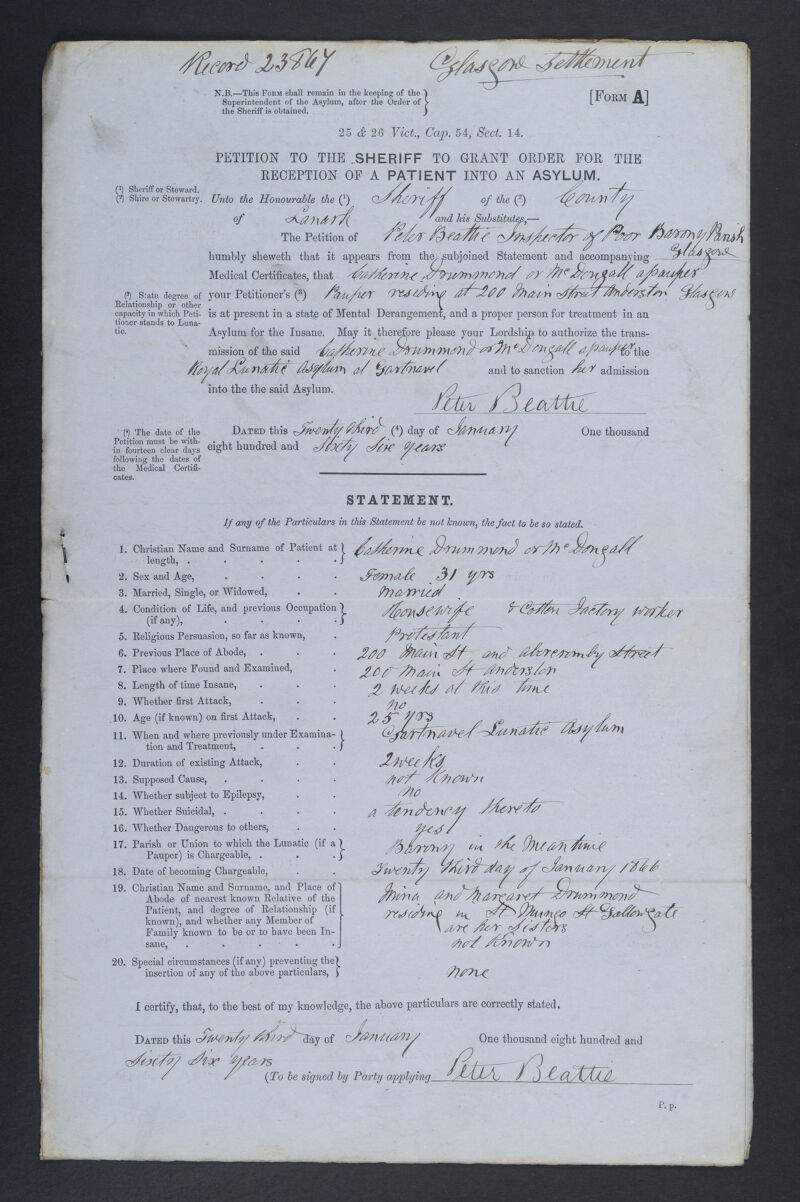 Record 23867 Glasgow Settlement
N.B.—This Form shall remain in the keeping of the
Superintendent of the Asylum, after the Order of
the Sheriff is obtained.
[Form A]
25 & 26 Vict., Cap. 54, Sect. 14.
PETITION TO THE SHERIFF TO GRANT ORDER FOR THE
RECEPTION OF A PATIENT INTO AN ASYLUM.
(1) Sheriff or Steward.
(2) Shire or Stewartry.
Unto the Honourable the (1) Sheriff of the (2) County
of Lanark and his Substitutes,—
The Petition of Peter Beattie Inspector of Poor Barony Parish
Glasgow
humbly sheweth that it appears from the subjoined Statement and accompanying
Medical Certificates, that Catherine Drummond or McDongall a pauper
(3) State degree of
Relationship or other
capacity in which Peti-
tioner stands to Luna-
tic.
your Petitioner's (3) Pauper residing at 200 Main Street Anderston Glasgow
is at present in a state of Mental Derangement, and a proper person for treatment in an
Asylum for the Insane. May it therefore please your Lordship to authorize the trans-
mission of the said Catherine Drummond or McDongall a pauper to the
Royal Lunatic Asylum at Gartnavel and to sanction her admission
into the the said Asylum.
Peter Beattie
(4) The date of the
Petition must be with-
in fourteen clear days
following the dates of
the Medical Certifi-
cates.
Dated this Twenty third (4) day of January One thousand
eight hundred and Sixty Six years
STATEMENT.
If any of the Particulars in this Statement be not known, the fact to be so stated.
1. Christian Name and Surname of Patient at
length, . . . . . . Catherine Drummond or McDongall
2. Sex and Age, . . . . Female 31 yrs
3. Married, Single, or Widowed, . . Married
4. Condition of Life, and previous Occupation
(if any), . . . . . Housewife & Cotton Factory worker
5. Religious Persuasion, so far as known, . Protestant
6. Previous Place of Abode, . . . 200 Main St and abercromby Street
7. Place where Found and Examined, . 200 Main St Anderston
8. Length of time Insane, . . . 2 weeks at this time
9. Whether first Attack, . . . no
10. Age (if known) on first Attack, . . 25 yrs
11. When and where previously under Examina-
tion and Treatment, . . . Gartnavel Lunatic Asylum
12. Duration of existing Attack, . . 2 weeks
13. Supposed Cause, . . . . not known
14. Whether subject to Epilepsy, . . no
15. Whether Suicidal, . . . . a tendency thereto
16. Whether Dangerous to others, . . yes
17. Parish or Union to which the Lunatic (if a
Pauper) is Chargeable, . . . Barony in the Meantime
18. Date of becoming Chargeable, . . Twenty third day of January 1866
19. Christian Name and Surname, and Place of
Abode of nearest known Relative of the
Patient, and degree of Relationship (if
known), and whether any Member of
Family known to be or to have been In-
sane, . . . . . .
Mina and Margaret Drummond
residing in St Mungo St Gallowgate
are her Sisters
not known
20. Special circumstances (if any) preventing the
insertion of any of the above particulars, none
I certify, that, to the best of my knowledge, the above particulars are correctly stated.
Dated this Twenty third day of January One thousand eight hundred and
Sixty Six years
(To be signed by Party applying Peter Beattie
P. p.